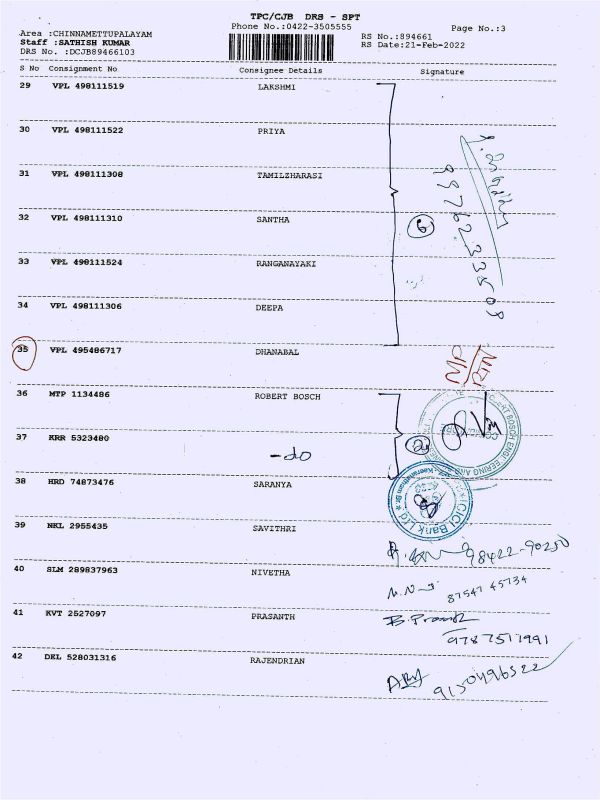 TPC/CJB DRS - SPT
Area :CHINNAMETTUPALAYAM
Phone No.:0422-3505555
Page No.:3
Staff :SATHISH KUMAR
RS No.:894661
DRS No. :DCJB89466103
RS Date:21-Feb-2022
S No Consignment No Consignee Details Signature
29 VPL 498111519 LAKSHMI
30 VPL 498111522 PRIYA
31 VPL 498111308 TAMILZHARASI
32 VPL 498111310 SANTHA
6
33 VPL 498111524 RANGANAYAKI
34 VPL 498111306 DEEPA
35 VPL 495486717 DHANABAL
36 MTP 1134486 ROBERT BOSCH
37 KRR 5323480 -do
38 HRD 74873476 SARANYA
ICICI Bank Ltd
39 NKL 2955435 SAVITHRI
98422-90250
40 SLM 289837963 NIVETHA
87547 45734
41 KVT 2527097 PRASANTH
9787511991
42 DEL 528031316 RAJENDRIAN
9150496522